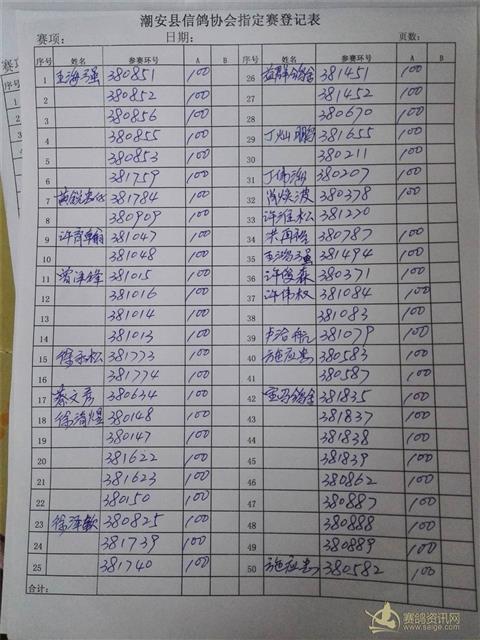 潮安县信鸽协会指定赛登记表
赛项: 日期: 页数:
序号 姓名 参赛环号 A B 序号 姓名 参赛环号 A B
1 王海强 380851 100 26 益群鸽舍 381451 100
2 380852 100 27 381452 100
3 380856 100 28 380670 100
4 380855 100 29 丁灿鹏 381655 100
5 380853 100 30 380211 100
6 381759 100 31 丁伟 380207 100
7 381784 100 32 肖焕波 380378 100
8 380909 100 33 许淮松 381220
9 许 381047 100 34 洪再 380787 100
10 381048 100 35 王海强 381494 100
11 曾泽锋 381015 100 36 许俊森 380371 100
12 381016 100 37 许伟权 381084 100
13 381014 100 38 381083 100
14 381013 100 39 卢治 381079 100
15 徐永松 381773 100 40 施 380583 100
16 381774 100 41 380587 100
17 蔡文彦 380634 100 42 宝马鸽舍 381835 100
18 徐清煌 380148 100 43 381837 100
19 380147 100 44 381838 100
20 381622 100 45 381839 100
21 381623 100 46 380862 100
22 380150 100 47 380887 100
23 徐泽敏 380825 100 48 380888 100
24 381739 100 49 380889 100
25 381740 100 50 施 380582 100
合计:
赛鸽资讯网
www.saige.com
赛项
序号
1
2
3
4